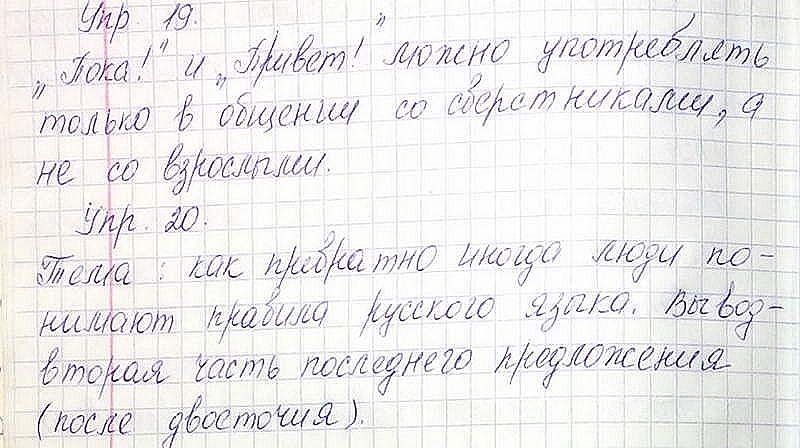 Упр 19.
„Пока!" и „Привет!" можно употреблять
только в общении со сверстниками, а
не со взрослыми.
Упр. 20.
Тема: как превратно иногда люди по-
нимают правила русского языка. Вывод-
вторая часть последнего предложения
(после двосточия).